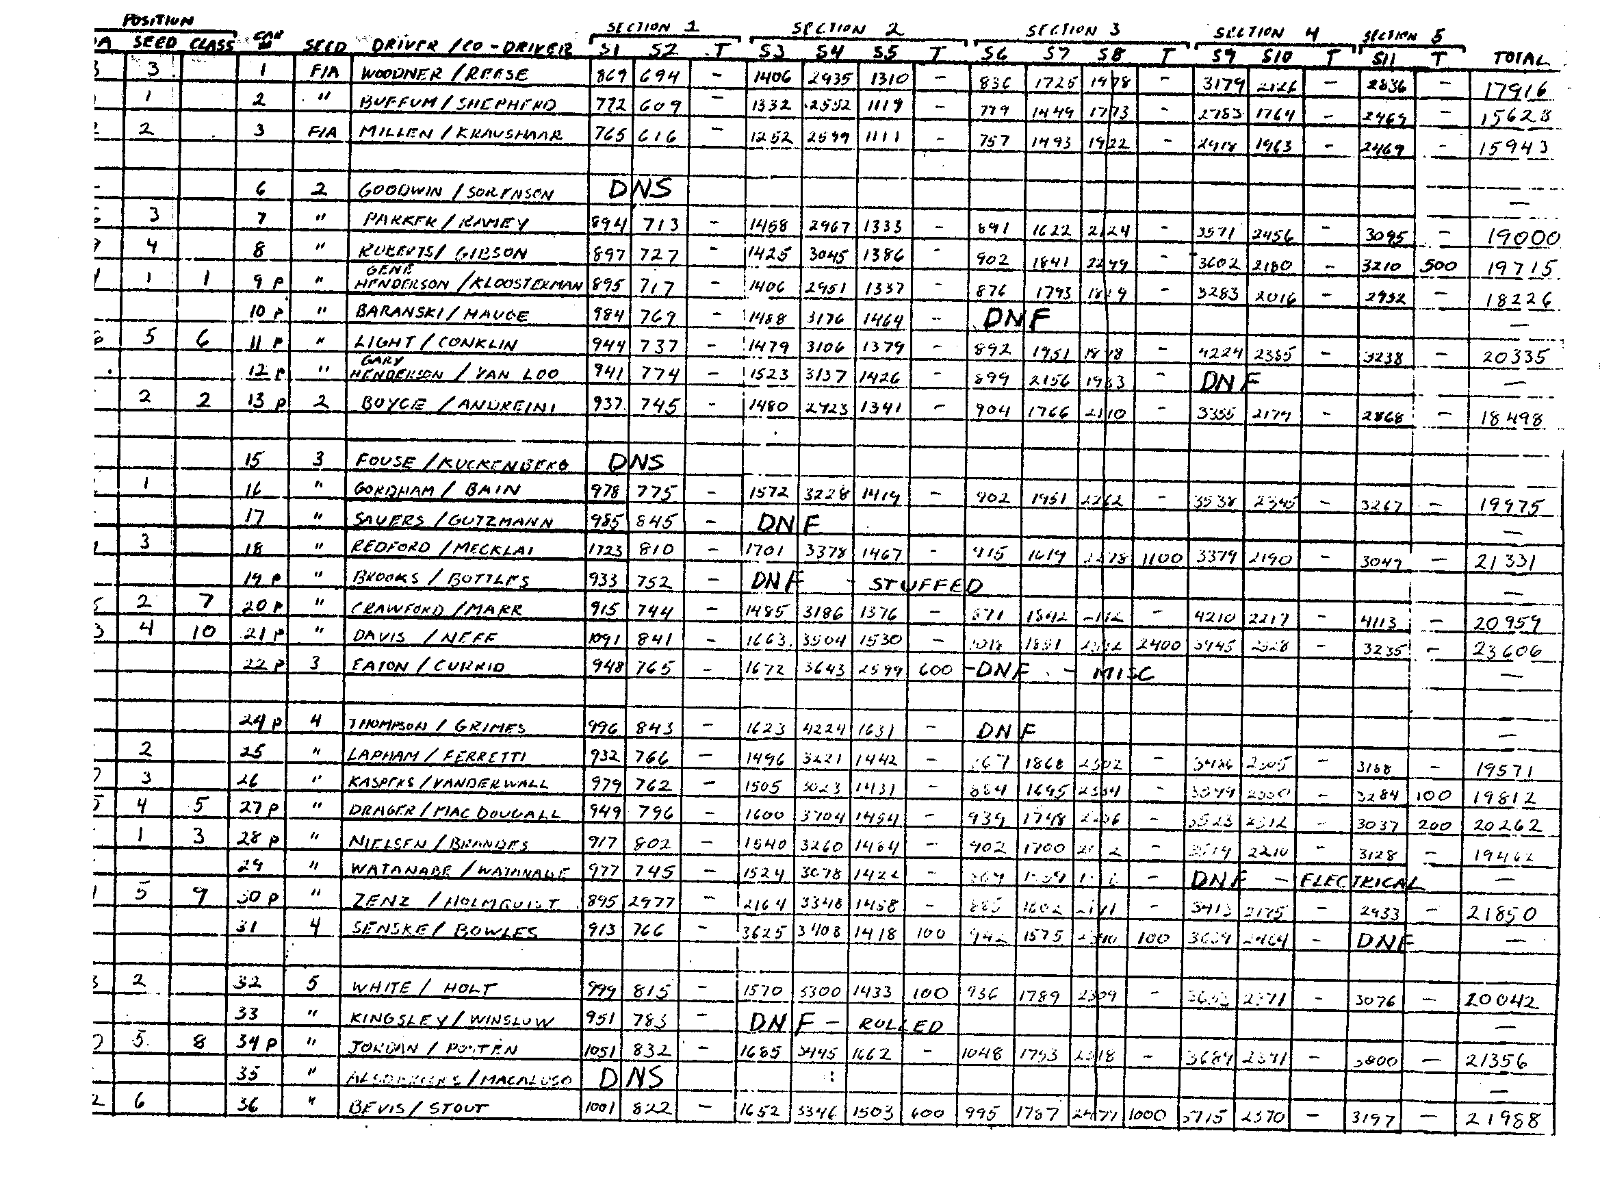 POSITION SECTION 1 SECTION 2 SECTION 3 SECTION 4 SECTION 5
A SEED CLASS CAR # SEED DRIVER / CO-DRIVER S1 S2 T S3 S4 S5 T S6 S7 S8 T S9 S10 T S11 T TOTAL
3 3 1 F/A WOODNER / REESE 869 694 - 1406 2935 1310 - 836 1725 1978 - 3179 2126 - 2836 - 17916
1 2 " BUFFUM / SHEPHERD 772 609 - 1332 2552 1119 - 779 1449 1773 - 2783 1764 - 2469 - 15628
2 2 3 F/A MILLEN / KRAUSHAAR 765 616 - 1252 2599 1111 - 757 1493 1922 - 2918 1963 - 2469 - 15943
- 6 2 GOODWIN / SORENSON DNS -
6 3 7 " PARKER / RAMEY 894 713 - 1458 2967 1333 - 891 1622 2124 - 3571 2456 - 3095 - 19000
9 4 8 " ROBERTS / GIBSON 897 727 - 1425 3045 1386 - 902 1841 2299 - 3602 2180 - 3210 500 19715
1 1 1 9 P " GENE HENDERSON / KLOOSTERMAN 895 717 - 1406 2951 1337 - 876 1793 1819 - 3283 2016 - 2932 - 18226
10 P " BARANSKI / HAUGE 984 769 - 1488 3176 1464 - DNF -
6 5 6 11 P " LIGHT / CONKLIN 944 737 - 1479 3106 1379 - 892 1951 - 4224 2385 - 3238 - 20335
12 P " GARY HENDERSON / VAN LOO 941 774 - 1523 3137 1426 - 899 2156 1983 - DNF -
2 2 13 P 2 BOYCE / ANDREINI 937 745 - 1480 2923 1341 - 904 1766 2110 - 3355 2179 - 2868 - 18498
15 3 FOUSE / KUCKENBERG DNS
1 16 " GORDHAM / BAIN 978 775 - 1572 3228 1419 - 902 1951 2262 - 3538 2345 - 3267 - 19975
17 " SAUERS / GUTZMANN 985 845 - DNF -
3 18 " REDFORD / MECKLAI 1723 810 - 1701 3378 1467 - 915 1619 1100 3379 2190 - 3049 - 21331
19 P " BROOKS / BOTTLES 933 752 - DNF - STUFFED -
5 2 7 20 P " CRAWFORD / MARR 915 744 - 1485 3186 1376 - 871 1842 - 4210 2217 - 4113 - 20959
3 4 10 21 P " DAVIS / NEFF 1091 841 - 1663 3504 1530 - 1851 2400 3945 - 3235 - 23606
22 P 3 EATON / CURRID 948 765 - 1672 3643 2599 600 - DNF - MISC -
24 P 4 THOMPSON / GRIMES 996 843 - 1623 4224 1631 - DNF -
2 25 " LAPHAM / FERRETTI 932 766 - 1496 3221 1442 - 1868 2302 - 2305 - 3188 - 19571
3 26 " KASPERS / VANDERWALL 979 762 - 1505 3023 1431 - 884 1695 - - 3284 100 19812
5 4 5 27 P " DRAGER / MACDOUGALL 949 796 - 1600 3704 1454 - 939 1748 - - 3037 200 20262
1 3 28 P " NIELSEN / BRANDES 917 802 - 1540 3260 1464 - 902 1700 - 2210 - 3128 - 19462
29 " WATANABE / WATANABE 977 745 - 1524 3078 1422 - - DNF - ELECTRICAL -
1 5 9 30 P " ZENZ / HOLMQUIST 895 2977 - 2164 3348 1458 - 885 1602 - 3413 2175 - 2933 - 21850
31 4 SENSKE / BOWLES 913 766 - 3625 3408 1418 100 942 1575 100 3659 2464 - DNF -
3 2 32 5 WHITE / HOLT 999 815 - 1570 3300 1433 100 936 1789 2309 - 2371 - 3076 - 20042
33 " KINGSLEY / WINSLOW 951 783 - DNF - ROLLED -
0 5 8 34 P " JORDAN / POSTEN 1051 832 - 1685 3445 1662 - 1048 1793 2318 - 3689 2391 - 3800 - 21356
35 " DNS -
2 6 36 " BEVIS / STOUT 1001 822 - 1652 3346 1503 600 995 1787 2477 1000 3715 2370 - 3197 - 21988